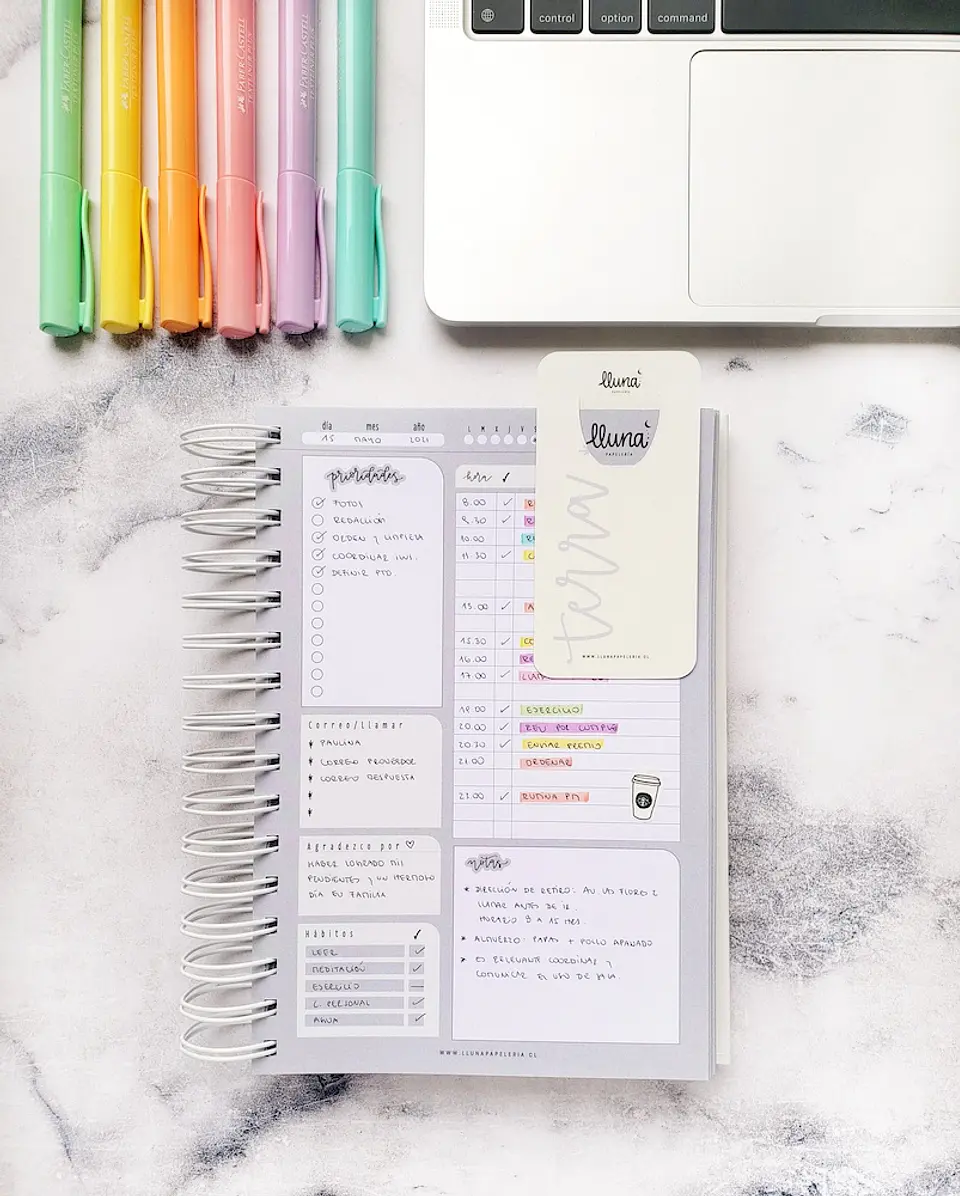 FABER-CASTELL
FABER-CASTELL
FABER-CASTELL
FABER-CASTELL
FABER-CASTELL
control
option
command
lluna
lluna
PAPELERÍA
terra
WWW.LLUNAPAPELERIA.CL
día mes año
15 MAYO 2021
L M X J V S
prioridades
FOTOS
REDACCIÓN
ORDEN Y LIMPIEZA
COORDINAR
DEFINIR PTD.
Correo/Llamar
PAULINA
CORREO PROVEEDOR
CORREO RESPUESTA
Agradezco por
HABER LOGRADO MIS
PENDIENTES Y UN HERMOSO
DÍA EN FAMILIA
Hábitos
LEER
MEDITACIÓN
EJERCICIO
C. PERSONAL
AGUA
hora
8.00
9.30
10.00
11.30
15.00
15.30
16.00
17.00
19.00 EJERCICIO
20.00 REU POR CUMPLE
20.30 ENVIAR PREMIO
21.00 ORDENAR
23.00 RUTINA PM
notas
DIRECCIÓN DE RETIRO: AV. LAS FLORES 2
LLAMAR ANTES DE IR.
HORARIO 9 A 15 HRS.
ALMUERZO: PAPAS + POLLO APANADO
ES RELEVANTE COORDINAR Y
COMUNICAR EL USO DE
WWW.LLUNAPAPELERIA.CL